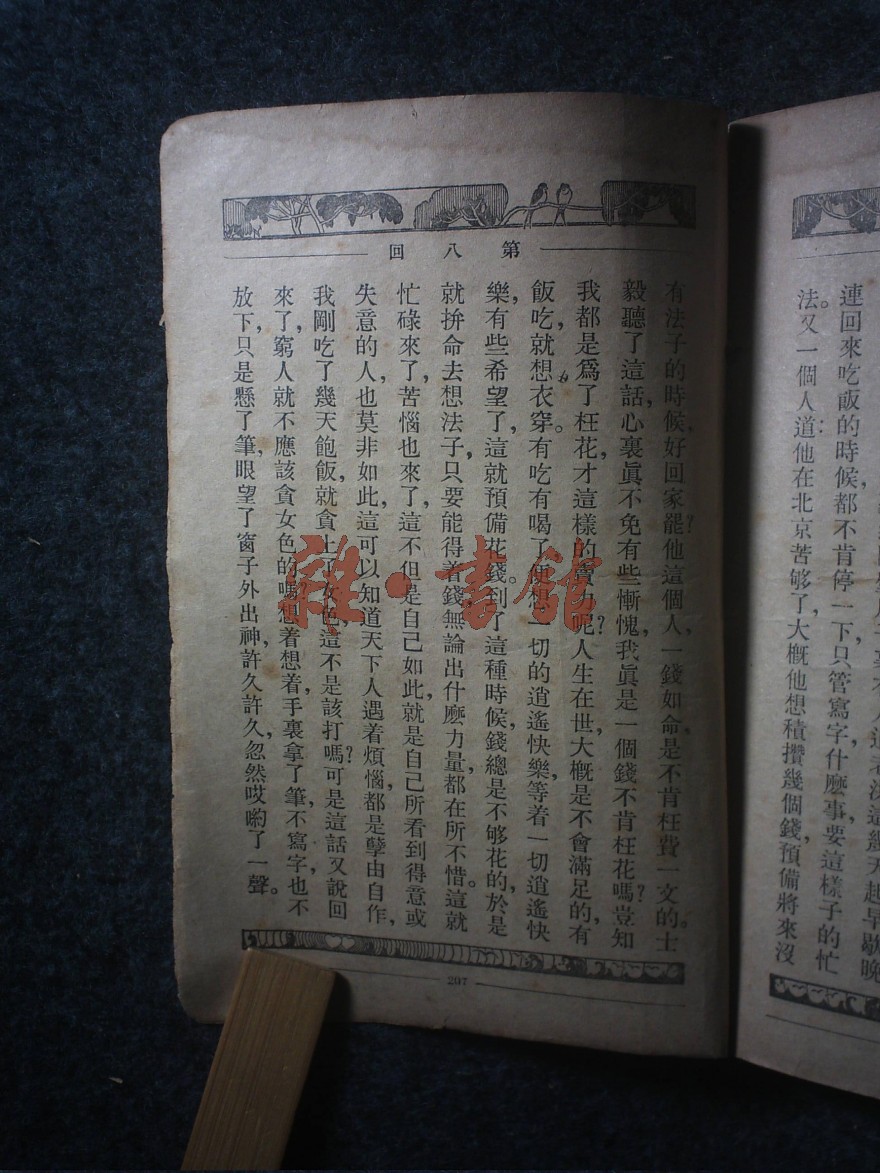 連回來吃飯的時候，都不肯停一下，只管寫字，什麼事，要這樣子的忙
法。又一個人道：他在北京苦够了，大概他想積攢幾個錢，預備將來沒
第八回
有法子的時候，好回家罷？他這個人，一錢如命，是不肯枉費一文的。士
毅聽了這話，心裏眞不免有些慚愧，我眞是一個錢不肯枉花嗎？豈知
我都是爲了枉花，才這樣的賣力呢？人生在世，大概是不會滿足的，有
飯吃，就想衣穿。有吃有喝了，便想一切的逍遙快樂，等着一切逍遙快
樂，有些希望了，這就預備花錢。到了這種時候，錢總是不够花的，於是
就拚命去想法子，只要能得着錢，無論出什麼力量，都在所不惜。這就
忙碌來了，苦惱也來了，這不但是自己如此，就是自己所看到得意或
失意的人，也莫非如此，這可以知道天下人遇着煩惱，都是孽由自作，
我剛吃了幾天飽飯，就貪上了女色，這不是該打嗎？可是這話又說回
來了，窮人就不應該貪女色的嗎？想着想着，手裏拿了筆，不寫字，也不
放下，只是懸了筆，眼望了窗子外出神，許久許久，忽然哎喲了一聲。
207
雜·書館